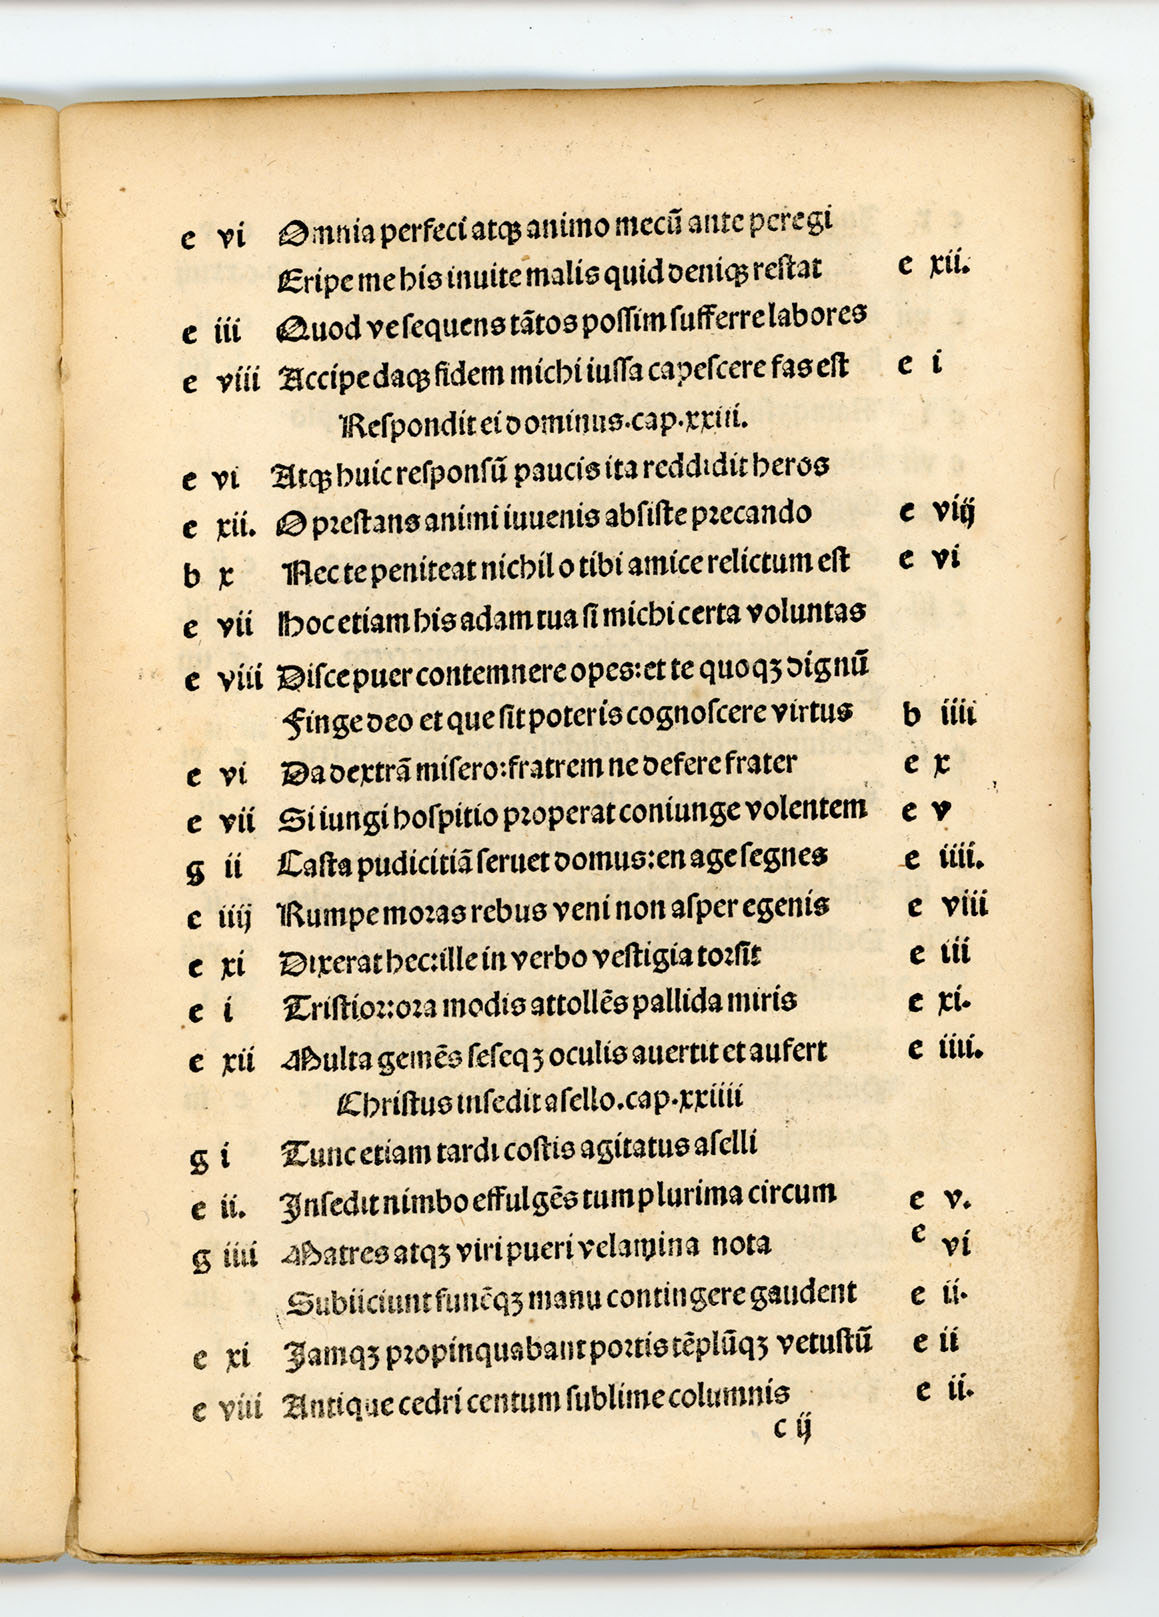 e vi Omnia perfeci atqꝫ animo mecū ante peregi
Eripe me his inuite malis quid deniqꝫ restat e xii.
e iii Quod ve sequens tātos possim sufferre labores
e viii Accipe daqꝫ fidem michi iussa capescere fas est e i
Respondit ei dominus.cap.xxiii.
e vi Atqꝫ huic responsū paucis ita reddidit heros
e xii. O prestans animi iuuenis absiste precando e viij
b x Nec te peniteat nichil o tibi amice relictum est e vi
e vii Hoc etiam his adam tua si michi certa voluntas
e viii Disce puer contemnere opes:et te quoqꝫ dignū
Finge deo et que sit poteris cognoscere virtus b iiii
e vi Da dextrā misero:fratrem ne defere frater e x
e vii Si iungi hospitio properat coniunge volentem e v
g ii Casta pudicitiā seruet domus:en age segnes e iiii.
e iiij Rumpe moras rebus veni non asper egenis e viii
e xi Dixerat hec:ille in verbo vestigia torsit e iii
e i Tristior:ora modis attollēs pallida miris e xi.
e xii Multa gemēs seseqꝫ oculis auertit et aufert e iiii.
Christus insedit asello.cap.xxiiii
g i Tunc etiam tardi costis agitatus aselli
e ii. Insedit nimbo effulgēs tum plurima circum e v.
g iiii Matres atqꝫ viri pueri velamina nota e vi
Subiiciunt funēqꝫ manu contingere gaudent e ii.
e xi Jamqꝫ propinquabant portis tēplūqꝫ vetustū e ii
e viii Antique cedri centum sublime columnis e ii.
c ij